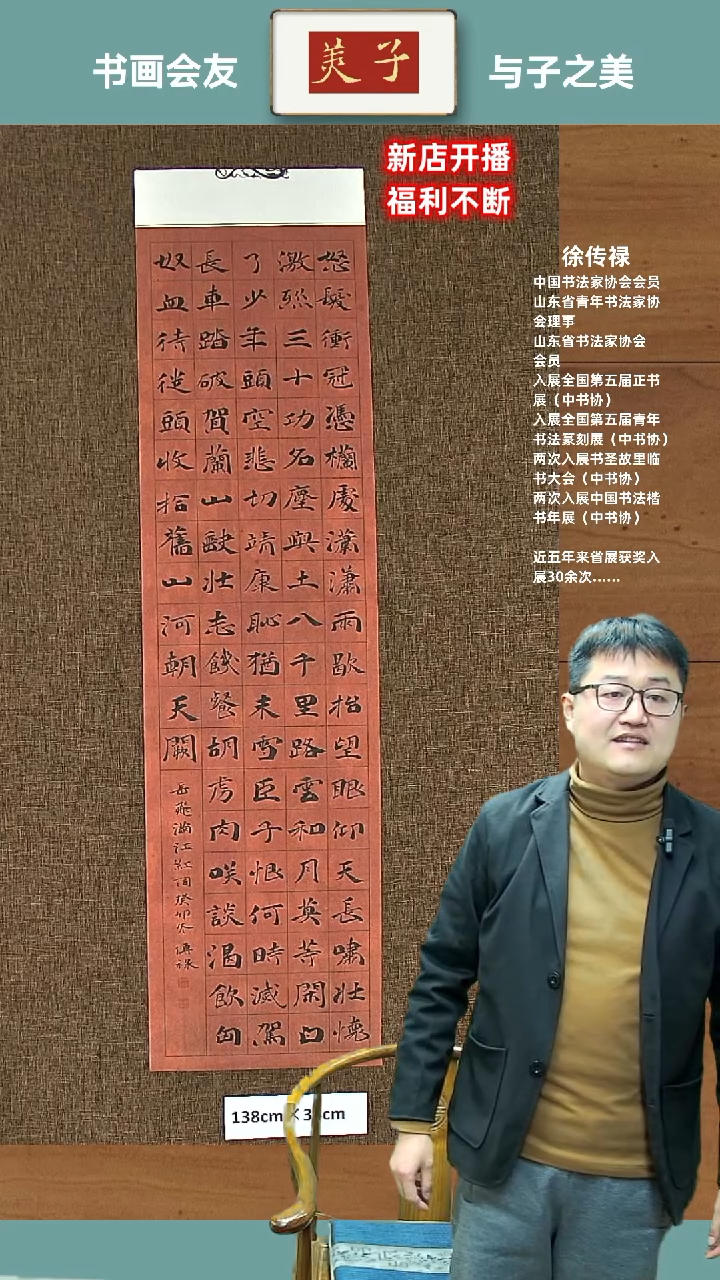 书画会友
子美
与子之美
新店开播
福利不断
徐传禄
中国书法家协会会员
山东省青年书法家协
会理事
山东省书法家协会
会员
入展全国第五届正书
展（中书协）
入展全国第五届青年
书法篆刻展（中书协）
两次入展书圣故里临
书大会（中书协）
两次入展中国书法楷
书年展（中书协）
近五年来省展获奖入
展30余次……
怒髮衝冠憑欄處瀟瀟雨歇抬望眼仰天長嘯壯懷
激烈三十功名塵與土八千里路雲和月莫等閑白
了少年頭空悲切靖康恥猶未雪臣子恨何時滅駕
長車踏破賀蘭山缺壯志饑餐胡虜肉咲談渴飲匈
奴血待從頭收拾舊山河朝天闕
岳飛滿江紅詞癸卯冬傳祿
138cm×3 cm